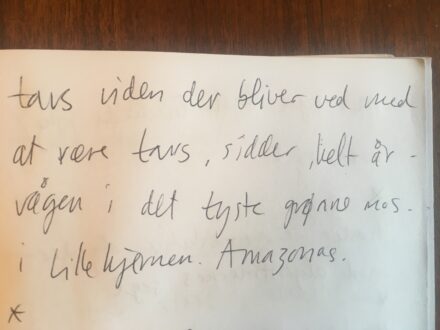 tavs viden der bliver ved med
at være tavs, sidder, helt år-
vågen i det tyste grønne mos.
i lillehjernen. Amazonas.
*